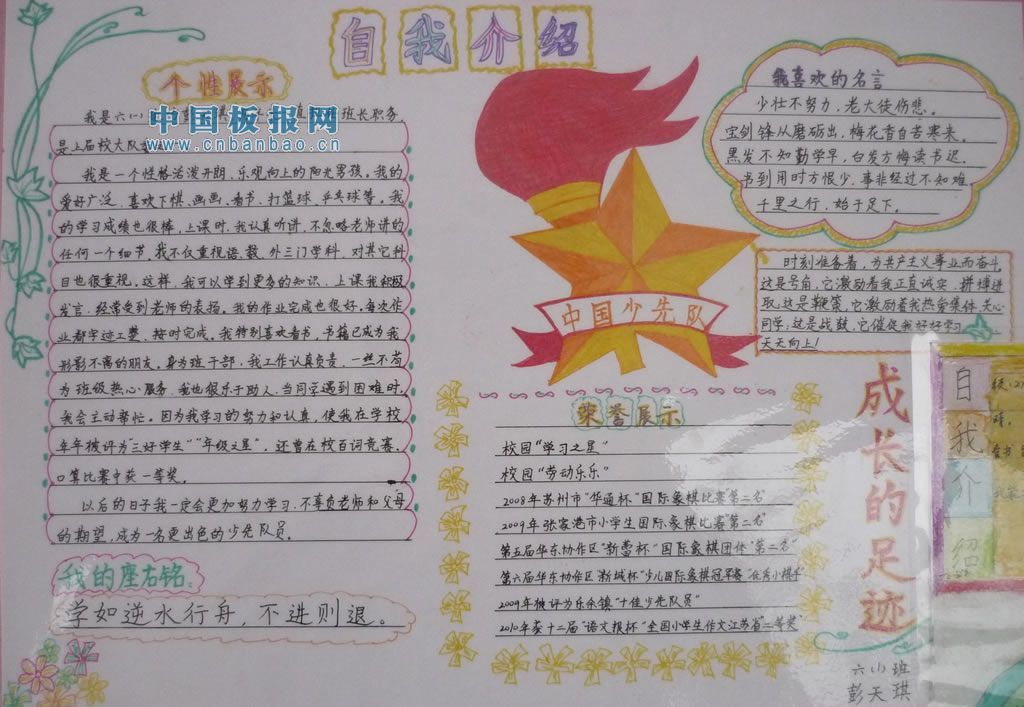 自我介绍
个性展示
我是六(一)班长职务,
是上届校大队
中国板报网
www.cnbanbao.cn
我是一个性格活泼开朗、乐观向上的阳光男孩。我的
爱好广泛,喜欢下棋、画画、看书、打篮球、乒乓球等。我
的学习成绩也很棒,上课时,我认真听讲,不忽略老师讲的
任何一个细节。我不仅重视语、数、外三门学科,对其它科
目也很重视。这样,我可以学到更多的知识。上课我积极
发言,经常受到老师的表扬。我的作业完成也很好。每次作
业都字迹工整,按时完成。我特别喜欢看书,书籍已成为我
形影不离的朋友。身为班干部,我工作认真负责,一丝不苟
为班级热心服务。我也很乐于助人,当同学遇到困难时,
我会主动帮忙。因为我学习的努力和认真,使我在学校
年年被评为“三好学生”“年级之星”,还曾在校百词竞赛,
口算比赛中获一等奖。
以后的日子我一定会更加努力学习,不辜负老师和父母
的期望,成为一名更出色的少先队员。
我的座右铭:
学如逆水行舟,不进则退。
中国少先队
我喜欢的名言
少壮不努力,老大徒伤悲。
宝剑锋从磨砺出,梅花香自苦寒来。
黑发不知勤学早,白发方悔读书迟。
书到用时方恨少,事非经过不知难
千里之行,始于足下。
时刻准备着,为共产主义事业而奋斗,
这是号角,它激励着我正直诚实,拼搏进
取,这是鞭策,它激励着我热爱集体,关心
同学,这是战鼓,它催促我好好学习
天天向上!
荣誉展示
校园“学习之星”
校园“劳动乐乐”
2008年苏州市“华通杯”国际象棋比赛“第二名”
2009年张家港市小学生国际象棋比赛“第二名”
第五届华东协作区“新蕾杯”国际象棋团体“第二名”
第六届华东协作区“新城杯”少儿国际象棋冠军赛“优秀小棋手”
2009年被评为乐余镇“十佳少先队员”
2010年获十二届“语文报杯”全国小学生作文江苏省“二等奖”
成长的足迹
六(1)班
彭天琪
自我介绍